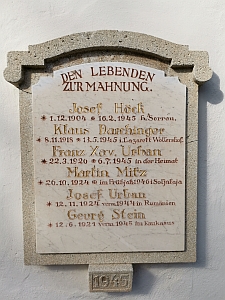 DEN LEBENDEN
ZUR MAHNUNG.
Josef Höck
* 1.12.1904 16.2.1945 b. Sorrau.
Klaus Daschinger
* 8.11.1918 13.5.1945 i. Lazarett
Franz Xav. Urban
* 22.3.1926 6.7.1945 in der Heimat
Martin Mitz
* 26.10.1924 im Frühjahr 1946 i.
Josef Urban
* 12.11.1924 verm. 1944 in Rumänien
Georg Stein
* 12.6.1921 verm. 1945 im Kaukasus
1945